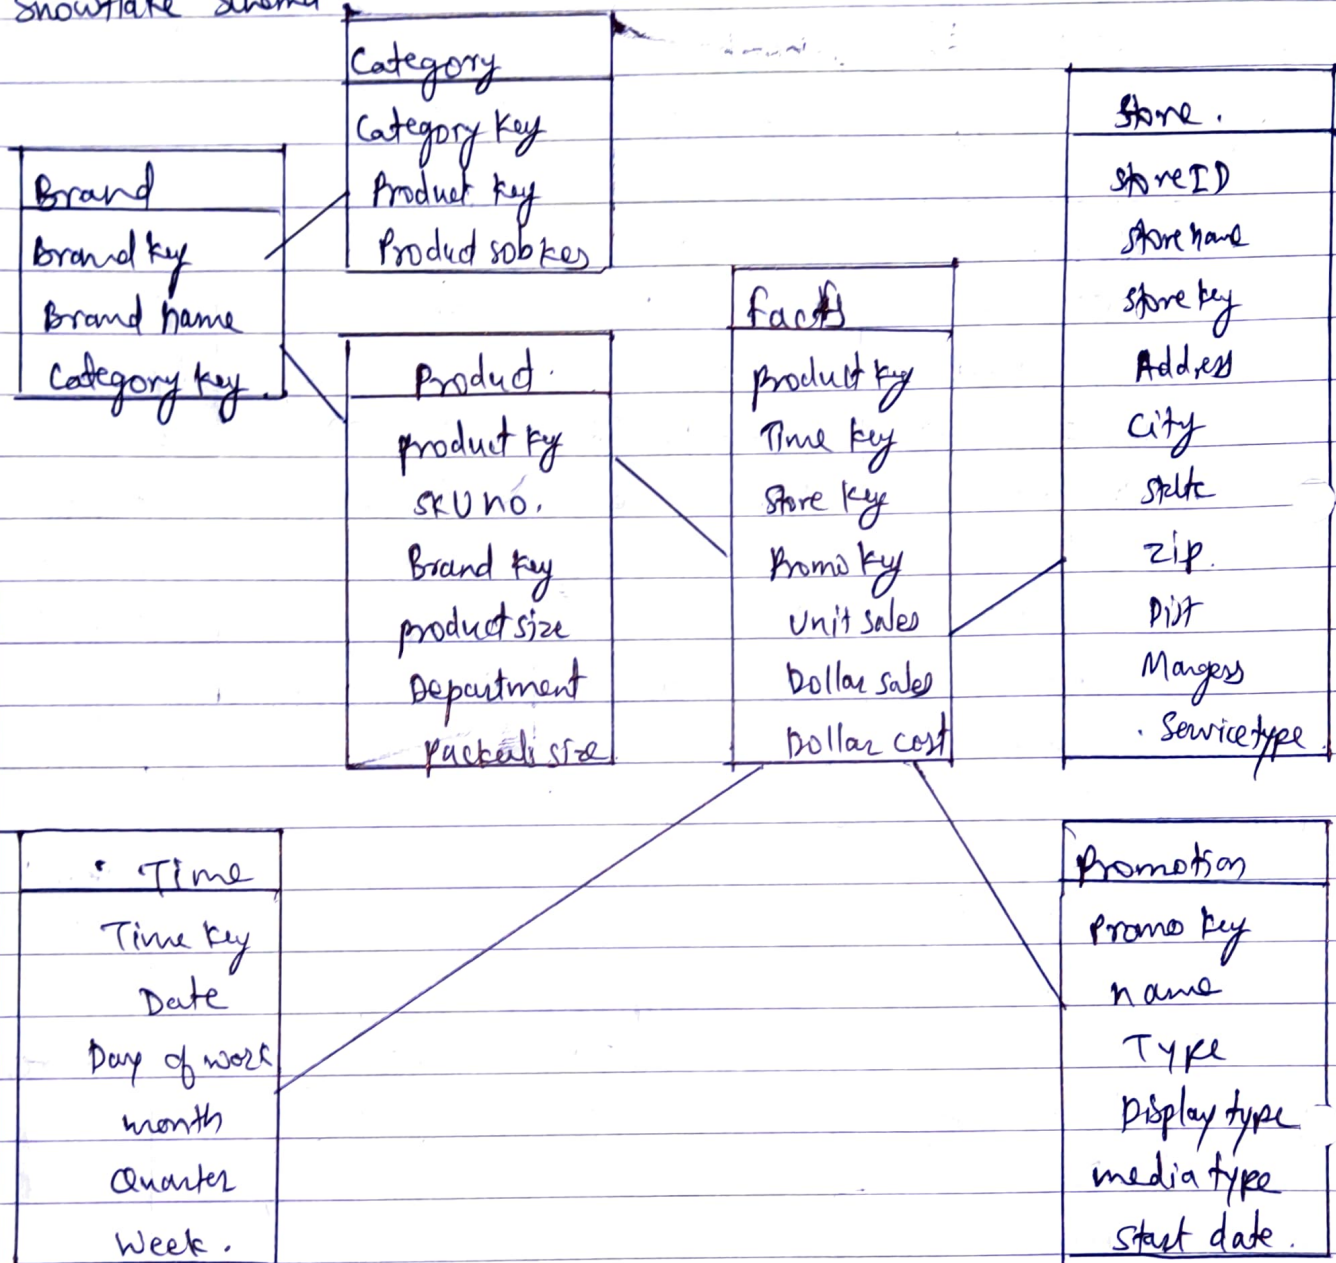 Snowflake schema
Category
Category Key
Product key
Product
Brand
Brand key
Brand name
Category key.
Product.
product ky
SKU no.
Brand key
product size
Department
size
Facts
product key
Time key
Store key
Promo key
Unit sales
Dollar sales
Dollar cost
Store.
Store ID
Store name
Store key
Address
City
State
Zip.
Dist
Service type
Time
Time key
Date
Day of work
month
Quarter
Week.
Promotion
Promo key
name
Type
Display type
media type
Start date.